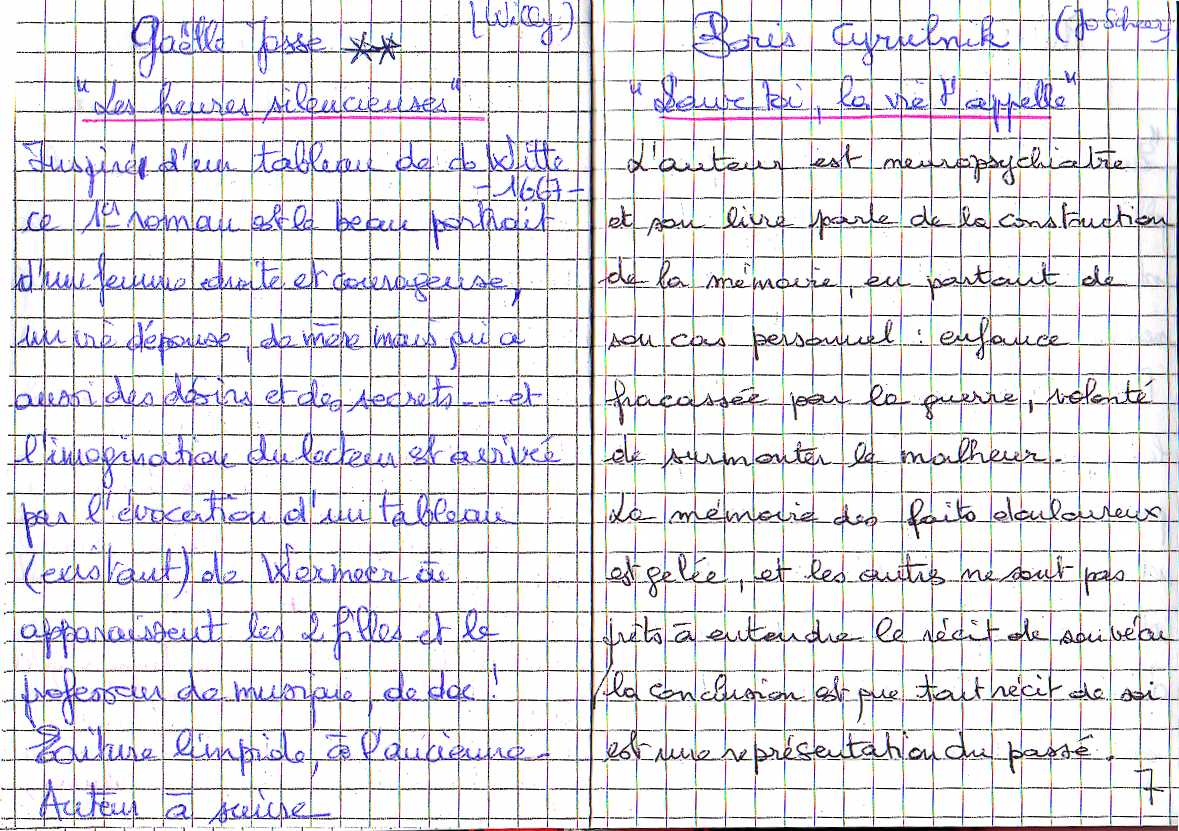 (Willy)
Gaëlle Josse **
"Les heures silencieuses"
Inspiré d'un tableau de de Witte
-1667-
ce 1er roman est le beau portrait
d'une femme droite et courageuse,
un vie d'épouse, de mère mais qui a
aussi des désirs et des secrets --- et
l'imagination du lecteur est avivée
par l'évocation d'un tableau
(existant) de Wermeer où
apparaissent les 2 filles et le
professeur de musique, de dos !
Ecriture limpide, à l'ancienne -
Auteur à suivre -
(Jo Scheer)
Boris Cyrulnik
"Sauve toi, la vie t'appelle"
L'auteur est neuropsychiatre
et son livre parle de la construction
de la mémoire, en partant de
son cas personnel : enfance
fracassée par la guerre, volonté
de surmonter le malheur.
La mémoire des faits douloureux
est gelée, et les autres ne sont pas
prêts à entendre le récit de son vécu
/la conclusion est que tout récit de soi
est une représentation du passé.
7